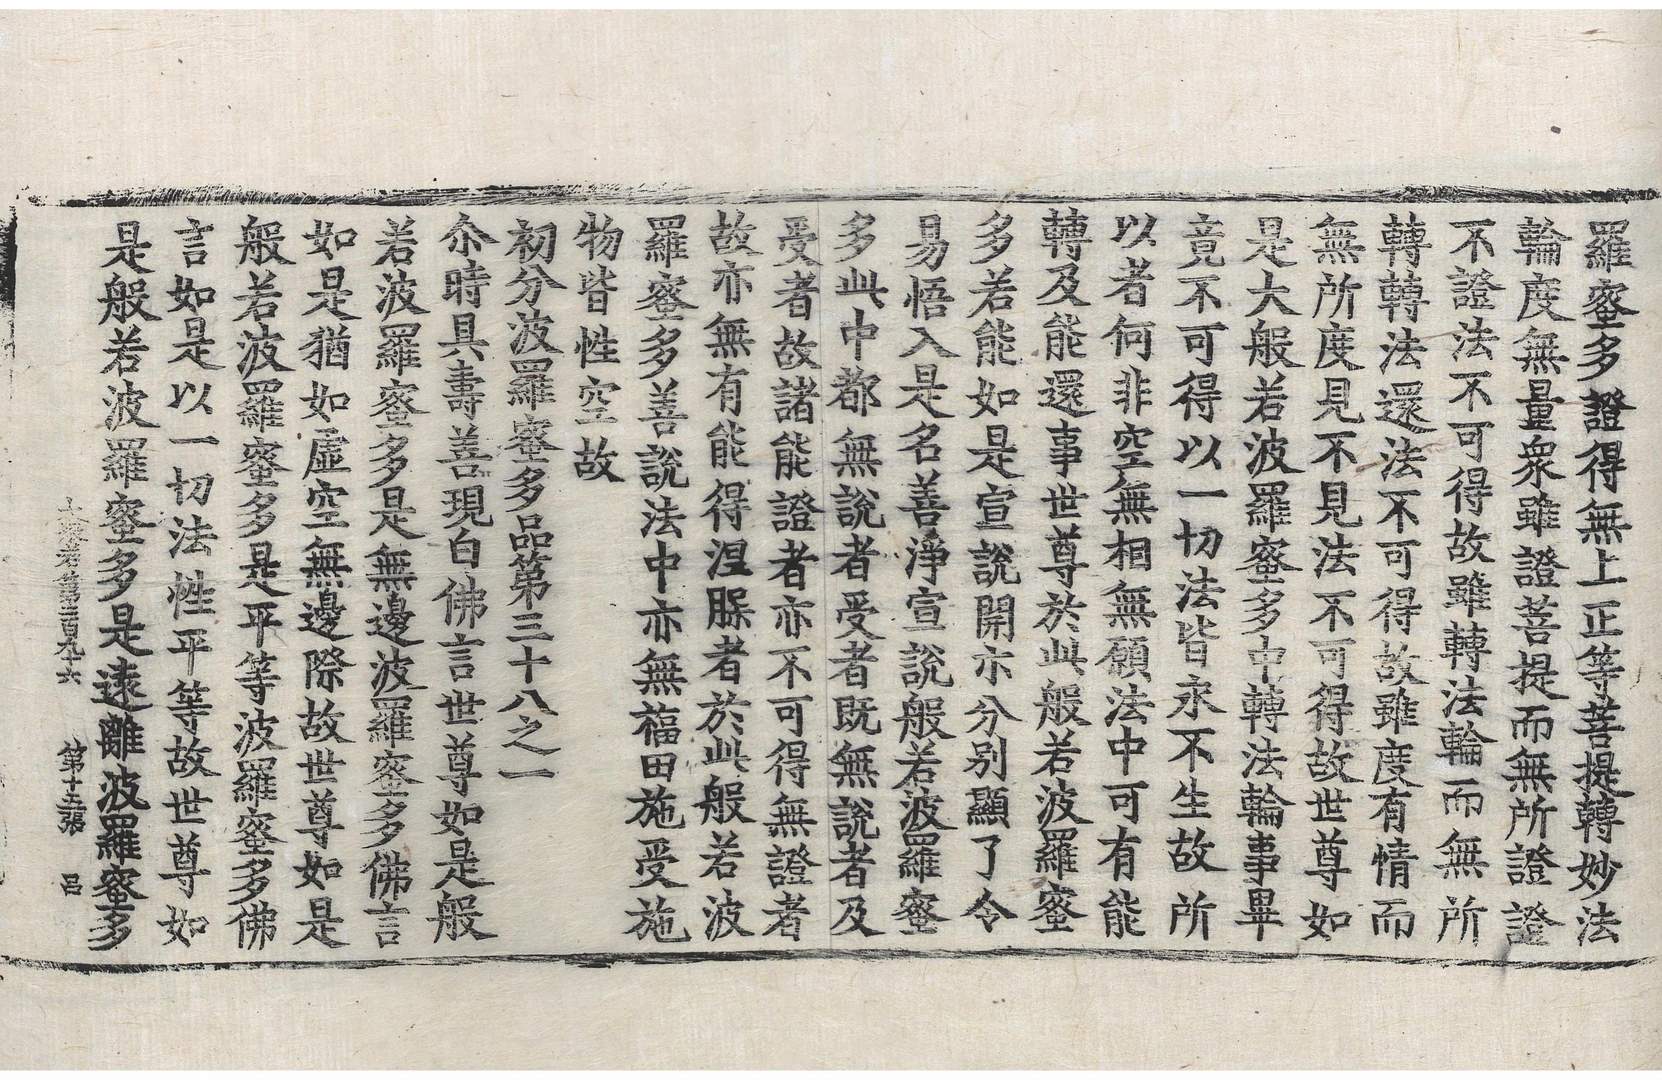 羅蜜多證得無上正等菩提轉妙法
輪度無量衆雖證菩提而無所證證
不證法不可得故雖轉法輪而無所
轉轉法還法不可得故雖度有情而
無所度見不見法不可得故世尊如
是大般若波羅蜜多中轉法輪事畢
竟不可得以一切法皆永不生故所
以者何非空無相無願法中可有能
轉及能還事世尊於此般若波羅蜜
多若能如是宣說開示分别顯了令
易悟入是名善淨宣說般若波羅蜜
多此中都無說者受者既無說者及
受者故諸能證者亦不可得無證者
故亦無有能得涅槃者於此般若波
羅蜜多善說法中亦無福田施受施
物皆性空故
初分波羅蜜多品第三十八之一
尒時具壽善現白佛言世尊如是般
若波羅蜜多是無邊波羅蜜多佛言
如是猶如虛空無邊際故世尊如是
般若波羅蜜多是平等波羅蜜多佛
言如是以一切法性平等故世尊如
是般若波羅蜜多是遠離波羅蜜多
第十五張 吕